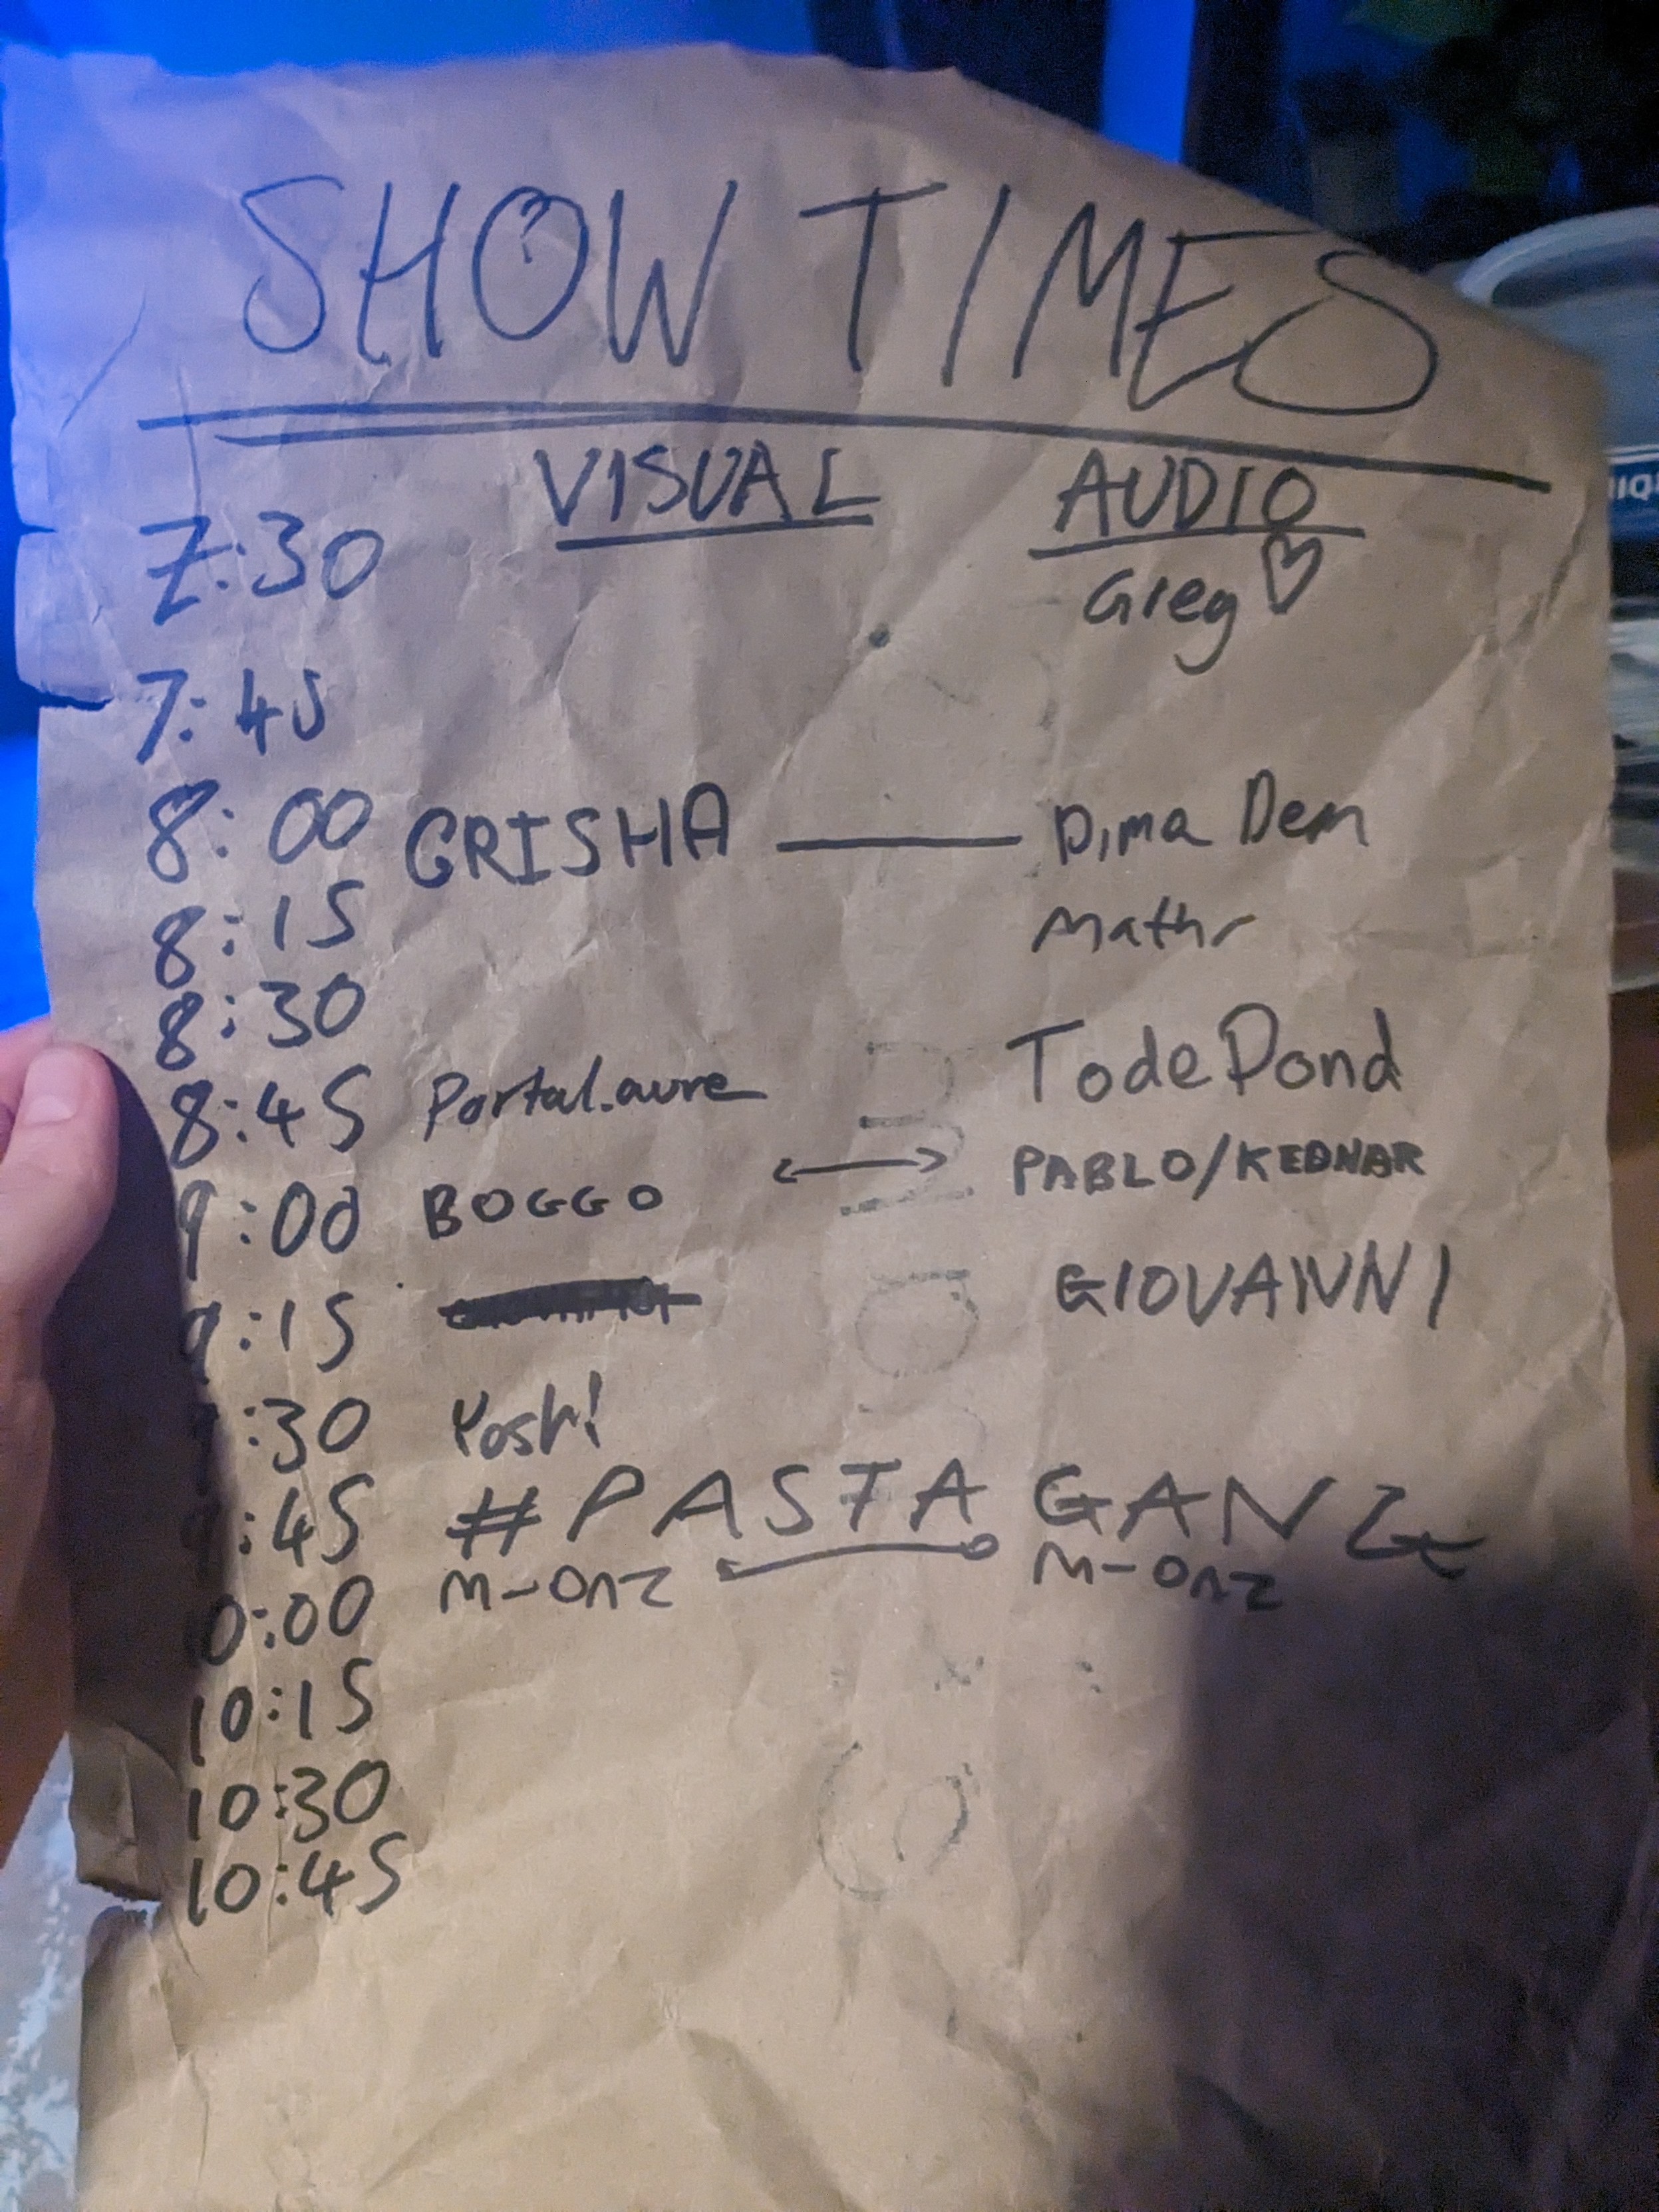 SHOW TIMES
VISUAL AUDIO
7:30 Greg ♡
7:45
8:00 GRISHA — Dima Dem
8:15 Mathr
8:30
8:45 Portal.aure TodePond
9:00 BOGGO ↔ PABLO/KEDNAR
9:15 GIOVANNI
9:30 Yosh!
9:45 #PASTA GANZ
10:00 M-ONZ M-ONZ
10:15
10:30
10:45